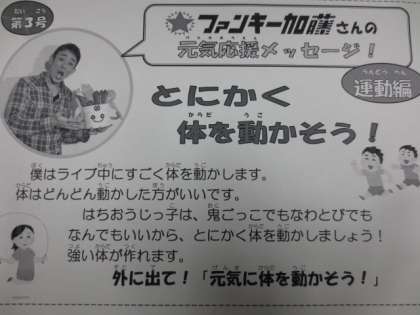 第3号
ファンキー加藤さんの
元気応援メッセージ！
とにかく
体を動かそう！
運動編
僕はライブ中にすごく体を動かします。
体はどんどん動かした方がいいです。
はちおうじっ子は、鬼ごっこでもなわとびでも
なんでもいいから、とにかく体を動かしましょう！
強い体が作れます。
外に出て！「元気に体を動かそう！」